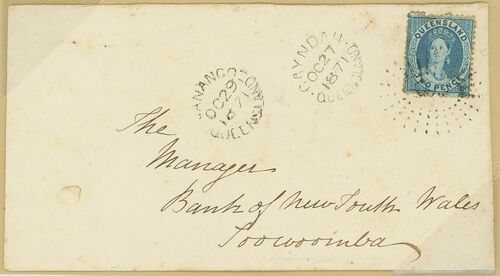 QUEENSLAND
TWO PENCE
GAYNDAH
OC 27
1871
QUEENSLAND
NANANGO
OC 29
1871
QUEENSLAND
The
Manager
Bank of New South Wales
Toowoomba